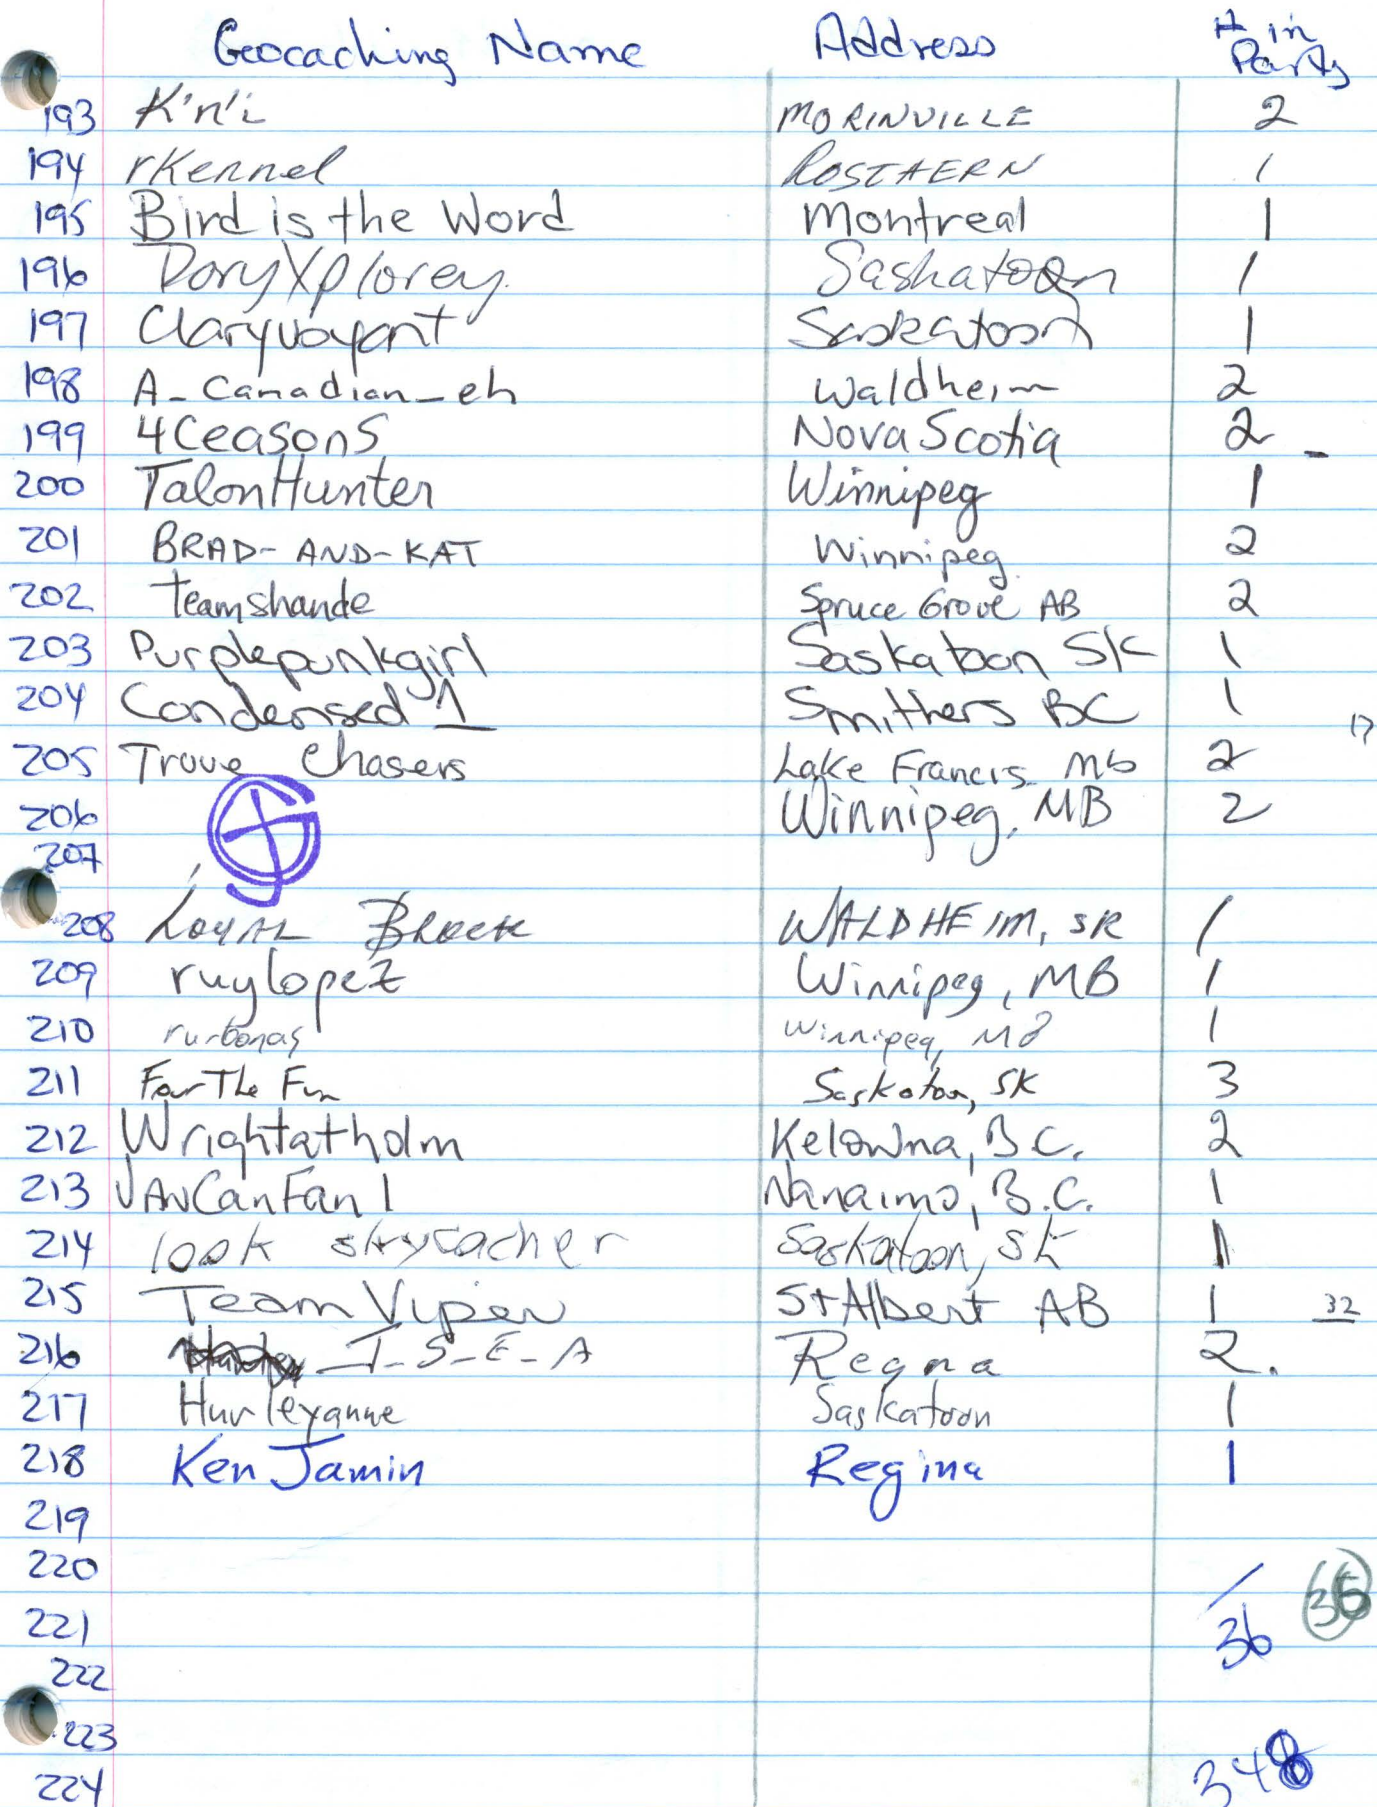 Geocaching Name Address # in Party
193 K'n'i MORINVILLE 2
194 rKennel ROSTHERN 1
195 Bird is the Word Montreal 1
196 DoryXplorey Saskatoon 1
197 Claryvoyant Saskatoon 1
198 A_Canadian_eh Waldheim 2
199 4CeasonS Nova Scotia 2
200 TalonHunter Winnipeg 1
201 BRAD-AND-KAT Winnipeg 2
202 teamshande Spruce Grove AB 2
203 Purplepunkgirl Saskatoon SK 1
204 Condensed 1 Smithers BC 1
17
205 Trove Chasers Lake Francis Mb 2
206 Winnipeg, MB 2
207
208 LOYAL BLOCK WALDHEIM, SK 1
209 ruylopez Winnipeg, MB 1
210 rurbonas Winnipeg, MB 1
211 For The Fun Saskatoon, SK 3
212 Wrightatholm Kelowna, B.C. 2
213 VANCanFan1 Nanaimo, B.C. 1
214 look skycacher Saskatoon, SK 1
215 Team Viper St Albert AB 1 32
216 I-S-E-A Regina 2
217 Hurleyanne Saskatoon 1
218 Ken Jamin Regina 1
219
220
221 36
222
223
224 348